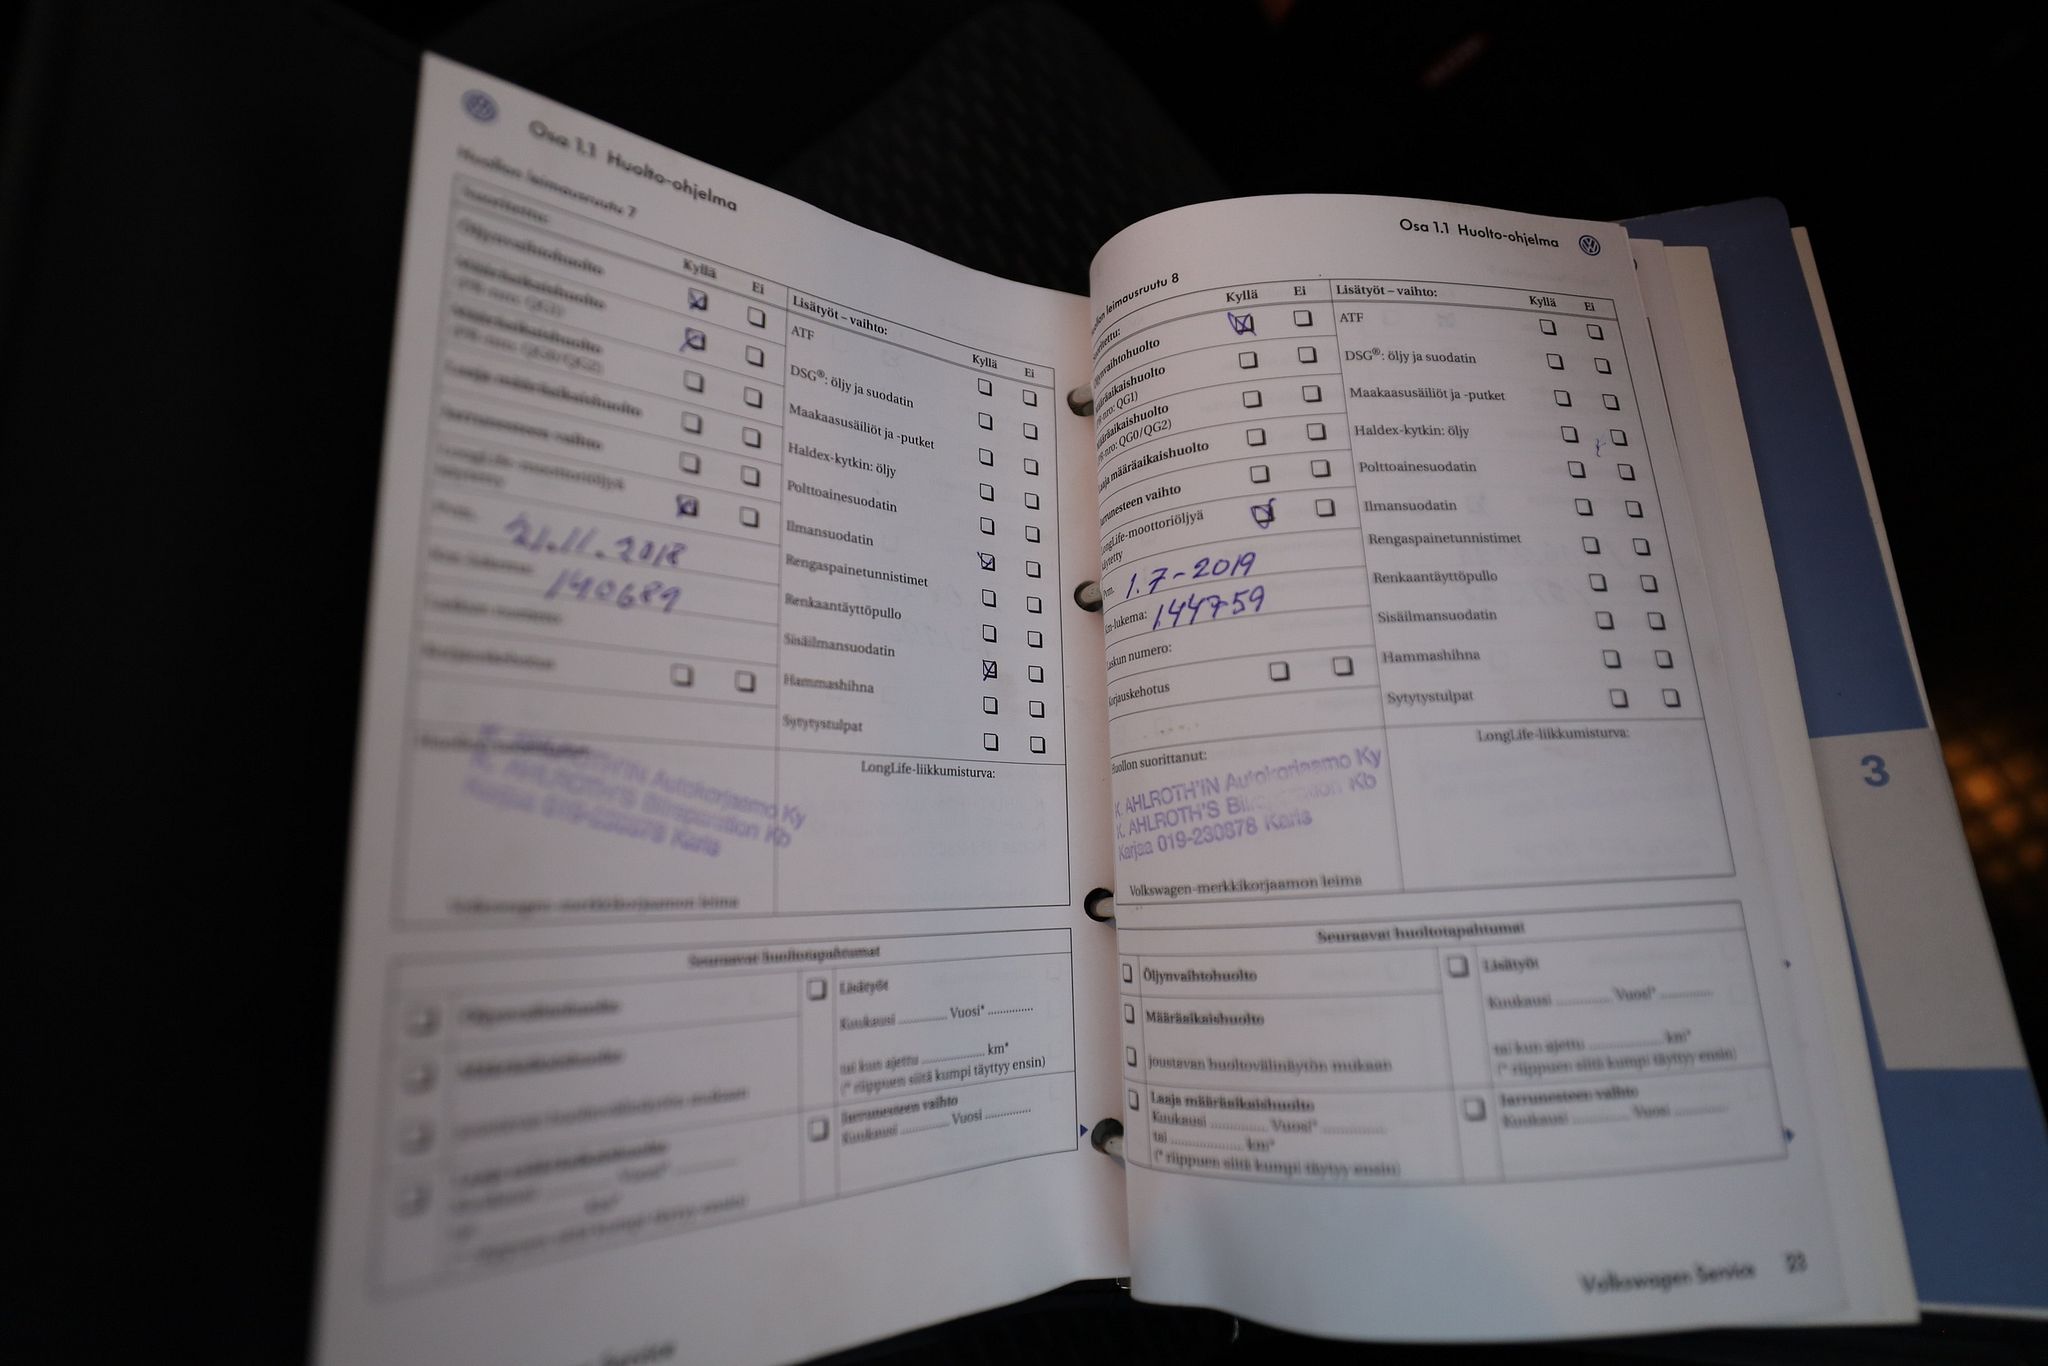 Osa 1.1 Huolto-ohjelma
Huollon leimausruutu 7
Suoritettu:
Kyllä Ei
Öljynvaihtohuolto
Määräaikaishuolto
(PR-nro: QG1)
Määräaikaishuolto
(PR-nro: QG0/QG2)
Laaja määräaikaishuolto
Jarrunesteen vaihto
LongLife-moottoriöljyä
käytetty
Pvm. 21.11.2018
Km-lukema: 140689
Laskun numero:
Korjauskehotus
Lisätyöt – vaihto:
Kyllä Ei
ATF
DSG®: öljy ja suodatin
Maakaasusäiliöt ja -putket
Haldex-kytkin: öljy
Polttoainesuodatin
Ilmansuodatin
Rengaspainetunnistimet
Renkaantäyttöpullo
Sisäilmansuodatin
Hammashihna
Sytytystulpat
K. AHLROTH'IN Autokorjaamo Ky
K. AHLROTH'S Bilreparation Kb
Karjaa 019-230878 Karis
Volkswagen-merkkikorjaamon leima
LongLife-liikkumisturva:
Seuraavat huoltotapahtumat
Öljynvaihtohuolto
Määräaikaishuolto
joustavan huoltovälinäytön mukaan
Laaja määräaikaishuolto
Kuukausi ............ Vuosi* ............
tai ............ km*
(* riippuen siitä kumpi täyttyy ensin)
Lisätyöt
Kuukausi ............ Vuosi* ............
tai kun ajettu ............ km*
(* riippuen siitä kumpi täyttyy ensin)
Jarrunesteen vaihto
Kuukausi ............ Vuosi ............
Osa 1.1 Huolto-ohjelma
leimausruutu 8
Kyllä Ei
Öljynvaihtohuolto
Määräaikaishuolto
(PR-nro: QG1)
Määräaikaishuolto
(PR-nro: QG0/QG2)
Laaja määräaikaishuolto
Jarrunesteen vaihto
LongLife-moottoriöljyä
käytetty
Pvm. 1.7-2019
Km-lukema: 144759
Laskun numero:
Korjauskehotus
Lisätyöt – vaihto:
Kyllä Ei
ATF
DSG®: öljy ja suodatin
Maakaasusäiliöt ja -putket
Haldex-kytkin: öljy
Polttoainesuodatin
Ilmansuodatin
Rengaspainetunnistimet
Renkaantäyttöpullo
Sisäilmansuodatin
Hammashihna
Sytytystulpat
Huollon suorittanut:
K. AHLROTH'IN Autokorjaamo Ky
K. AHLROTH'S Bilreparation Kb
Karjaa 019-230878 Karis
Volkswagen-merkkikorjaamon leima
LongLife-liikkumisturva:
Seuraavat huoltotapahtumat
Öljynvaihtohuolto
Määräaikaishuolto
joustavan huoltovälinäytön mukaan
Laaja määräaikaishuolto
Kuukausi ............ Vuosi* ............
tai ............ km*
(* riippuen siitä kumpi täyttyy ensin)
Lisätyöt
Kuukausi ............ Vuosi* ............
tai kun ajettu ............ km*
(* riippuen siitä kumpi täyttyy ensin)
Jarrunesteen vaihto
Kuukausi ............ Vuosi ............
Volkswagen Service 23
3